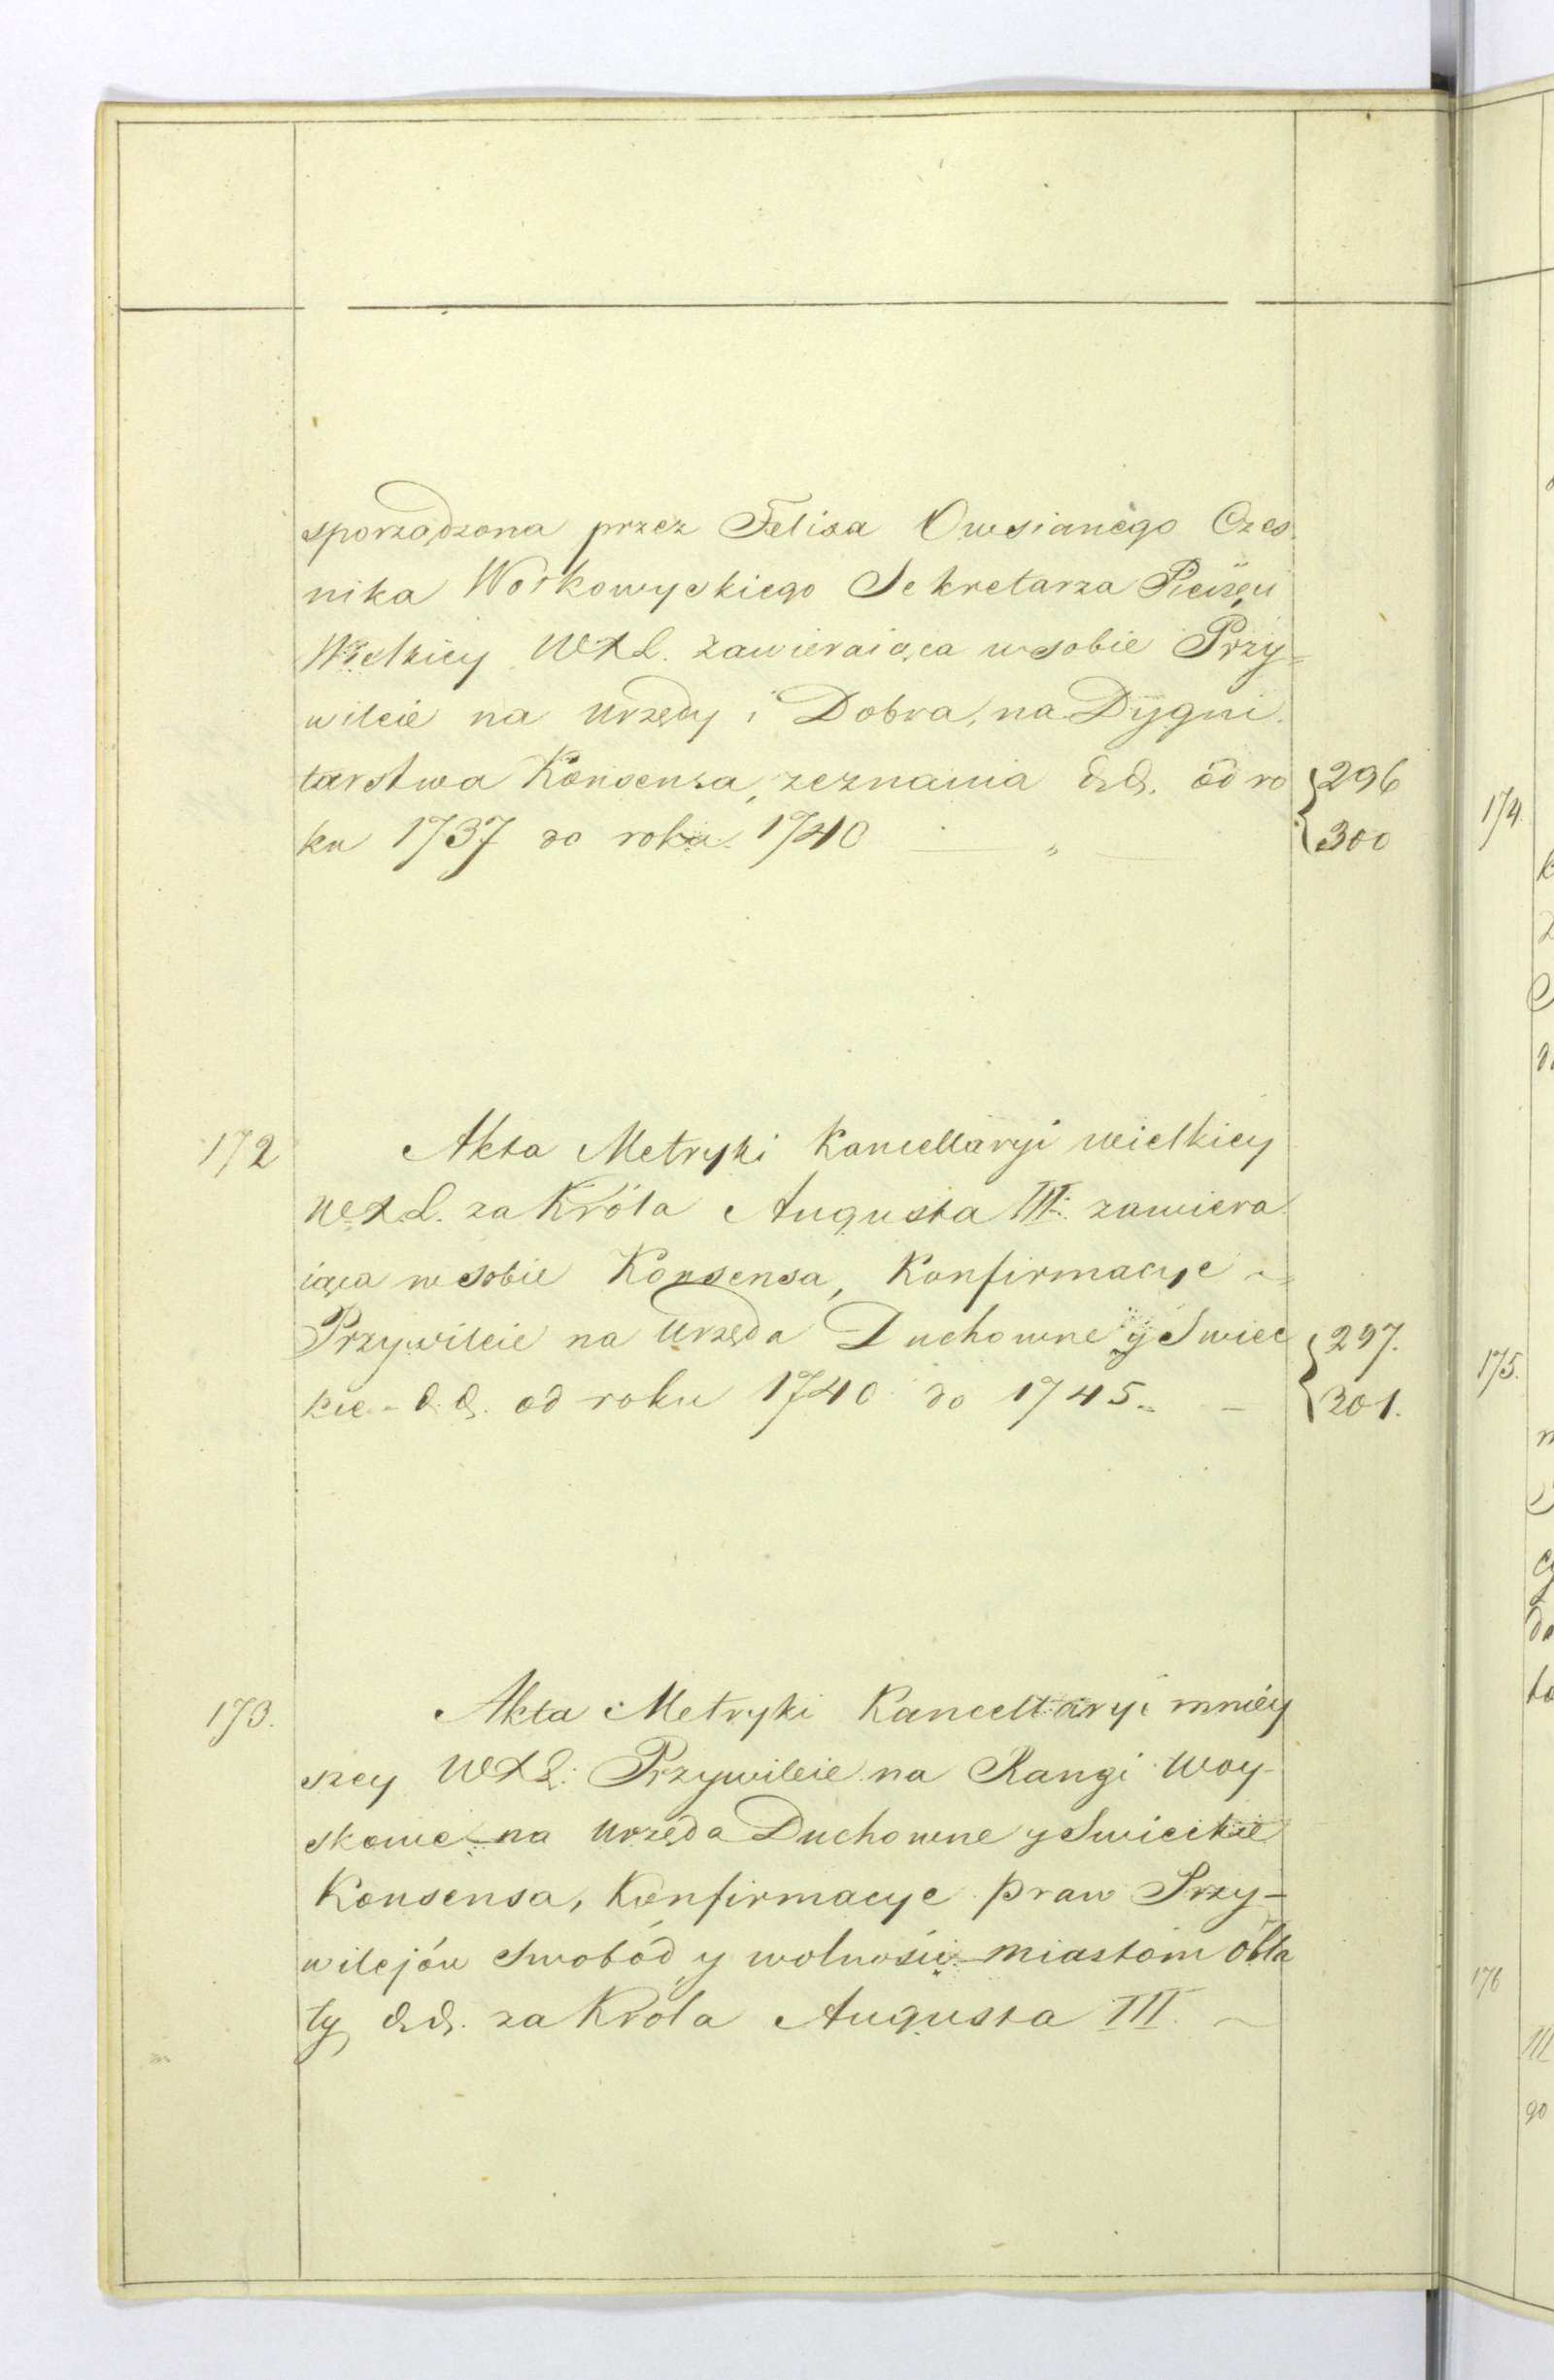 sporządzona przez Felixa Owsianégo Czes.
nika Wołkowyskiego Sekretarza Pieczęci
Wielkiey WXL. zawieraiąca w sobie Przy=
wileie na urzędy i Dobra, na Dygni.
tarstwa Konsensa, zeznania &&. od ro 296
ku 1737 do roku 1740 — „ — 300
172 Akta Metryki Kancellaryi wielkiey
WXL. za Króla Augusta III: zawiera
iąca w sobie Konsensa, Konfirmacye
Przywileie na Urzęda Duchowne y Swiec 297.
kie - &&. od roku 1740 do 1745.. — 301.
173. Akta Metryki Kancellaryi mniey
szey WXL: Przywileie na Rangi Woy-
skowe na Urzęda Duchowne y Swieckie
Konsensa, Konfirmacye praw Przy-
wilejów Swobód y wolności miastom óbla
ty, &&. za Króla Augusta III.
174.
175.
176
III
go